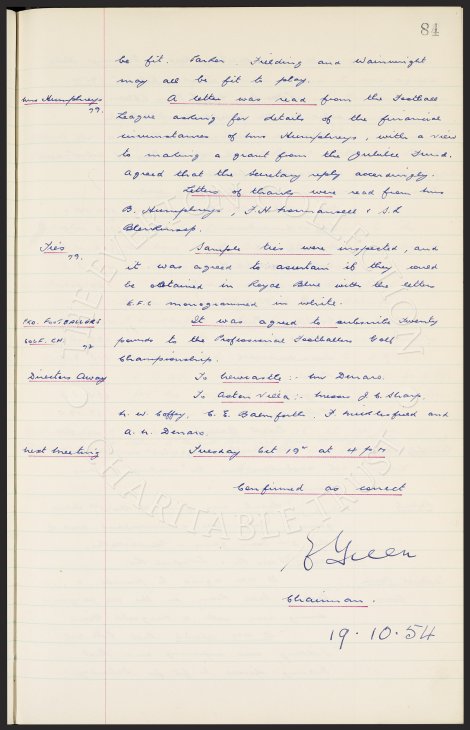 84
be fit. Farder. Fielding and Wainwright
may all be fit to play.
Mrs Humphreys
79.
A letter was read from the Football
League asking for details of the financial
circumstances of Mrs Humphreys, with a view
to making a grant from the Jubilee Fund.
Agreed that the Secretary reply accordingly.
Letters of thanks were read from Mrs
B. Humphreys, & S.L
Blenkinsop.
Ties
79.
Sample ties were inspected, and
it was agreed to ascertain if they could
be obtained in Royal Blue with the letters
E.F.C monogrammed in white.
PRO. FOOTBALLERS
GOLF. CH.
77
It was agreed to subscribe Twenty
pounds to the Professional Footballers Golf
Championship.
Directors Away
To Newcastle :- Mr Denaro.
To Aston Villa :- Messrs J.C. Sharp,
N. W. Coffey, C. E. Balmforth, F. Micklesfield and
A. N. Denaro.
Next Meeting
Tuesday Oct 19th at 4 PM
Confirmed as correct
E Green
Chairman.
19.10.54
THE EVERTON COLLECTION
CHARITABLE TRUST